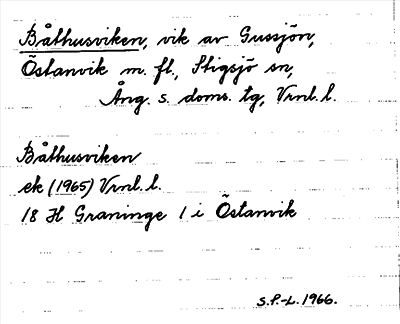 Båthusviken, vik av Gussjön,
Östanvik m. fl., Stigsjö sn,
Ång. s. doms. tg, Vrnl. l.
Båthusviken
ek (1965) Vrnl. l.
18 H Graninge 1 i Östanvik
S.P.-L. 1966.